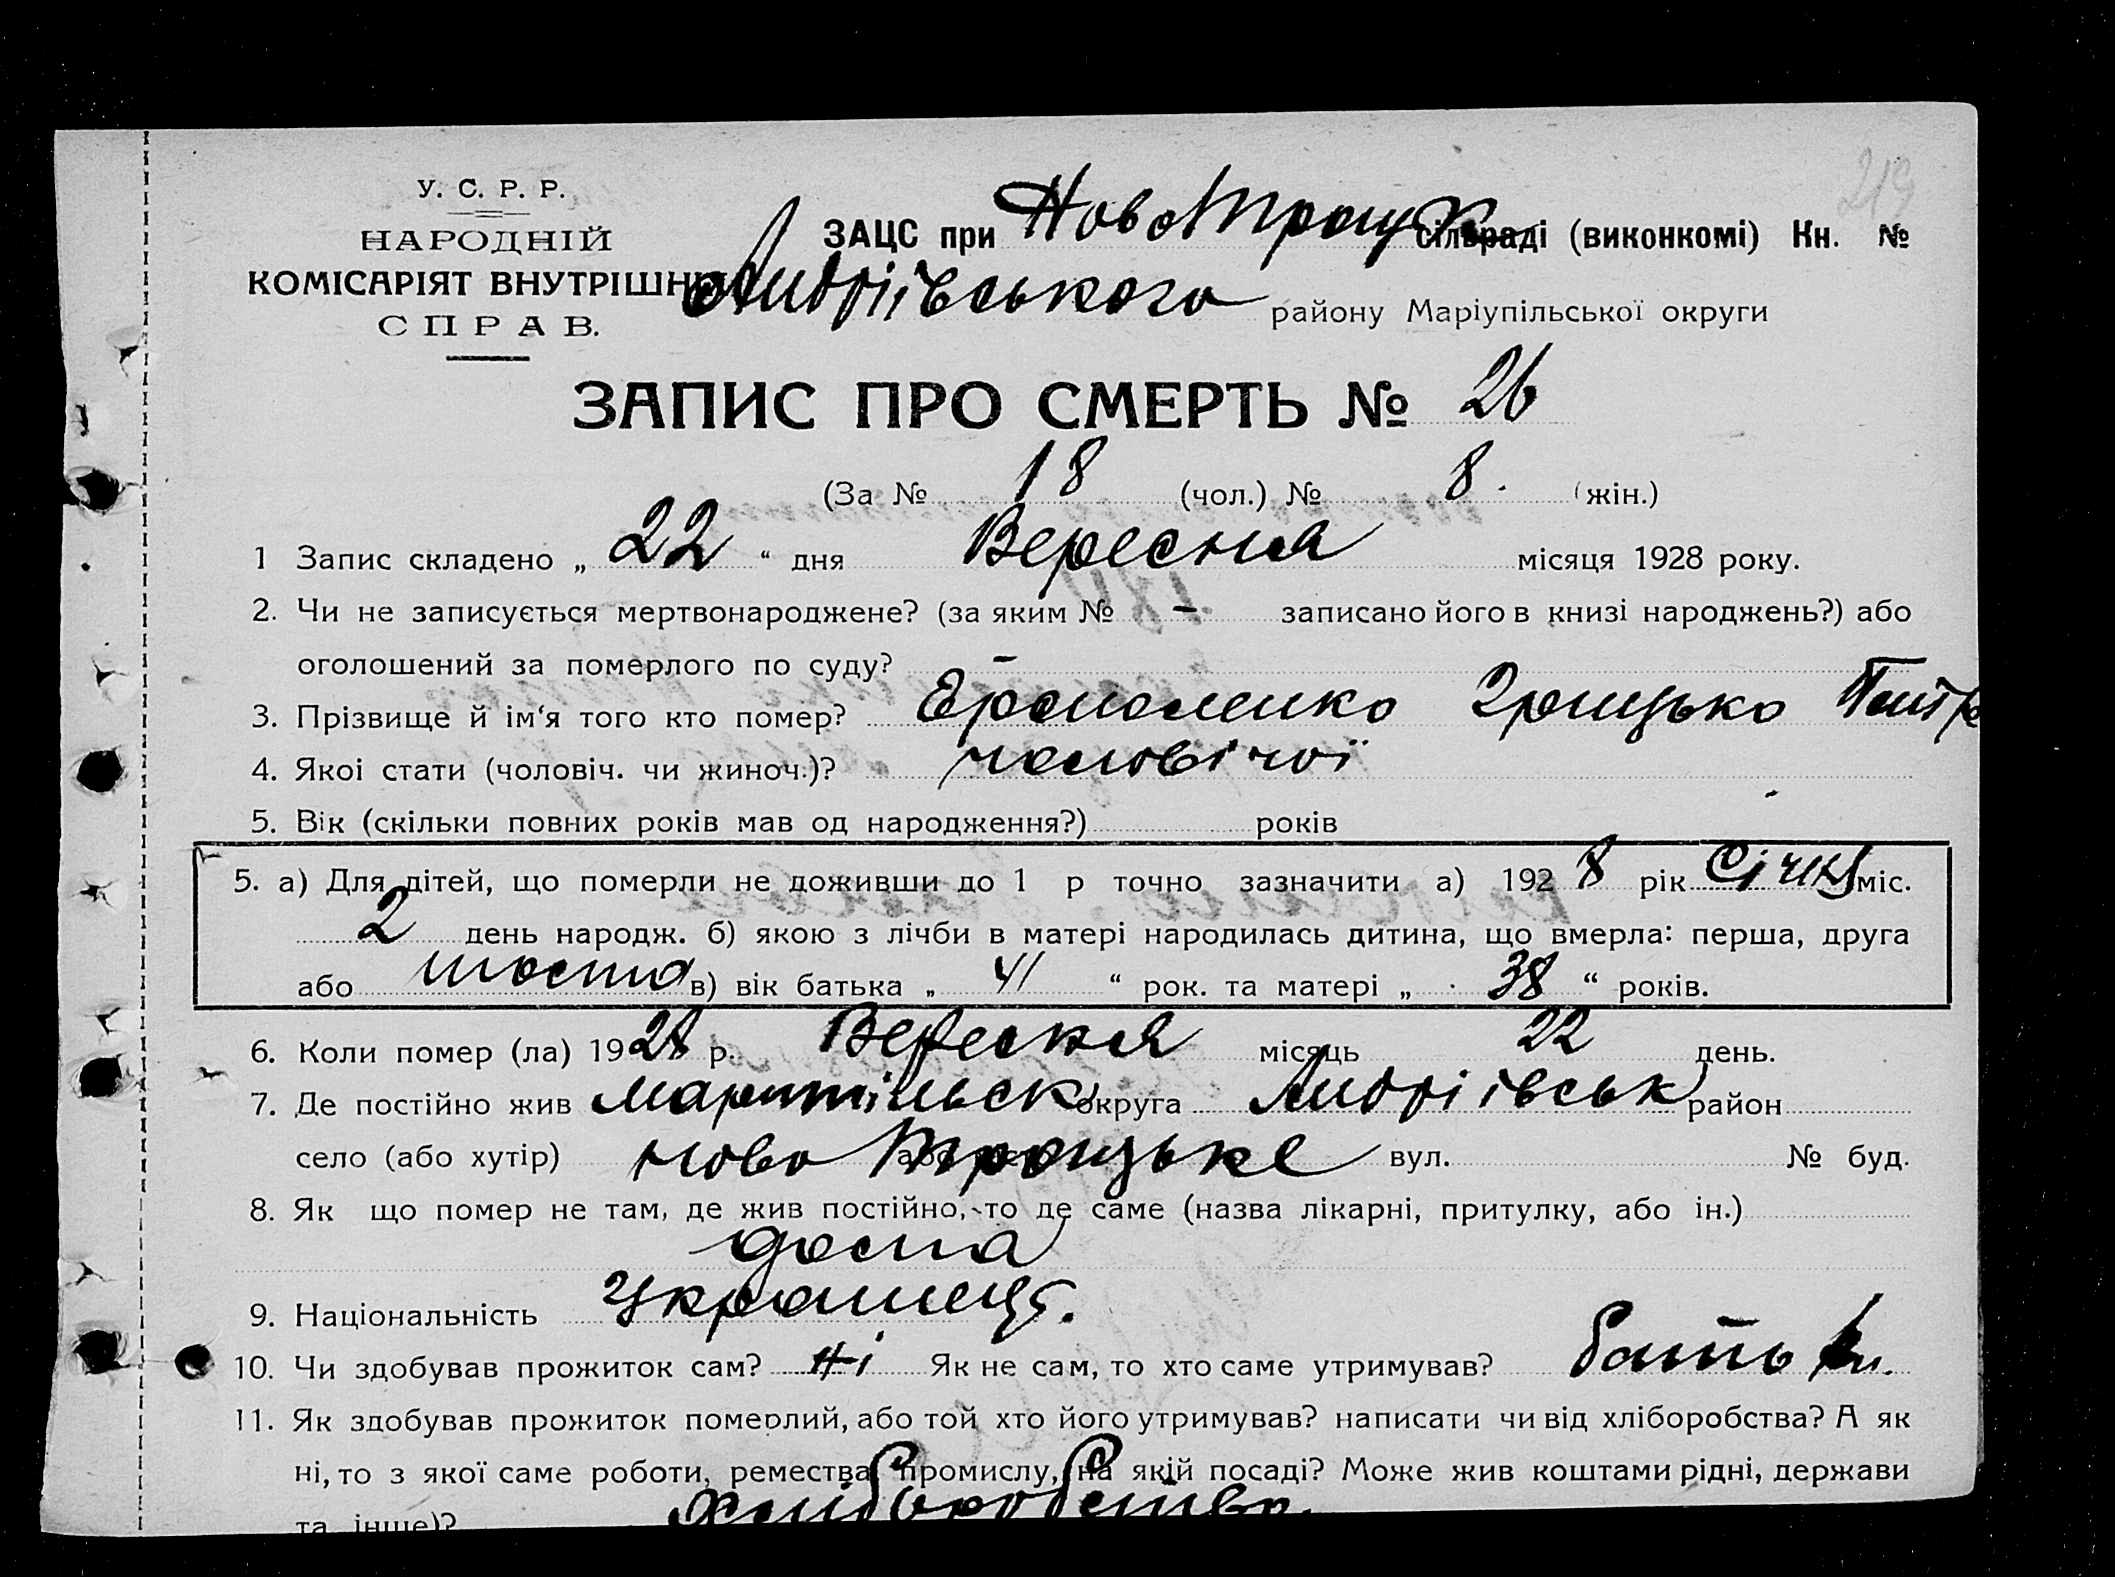 219
У. С. Р. Р.
НАРОДНІЙ
КОМІСАРІЯТ ВНУТРІШНІХ
СПРАВ.
ЗАЦС при НовоТроуцк сільраді (виконкомі) Кн. №
Андріівського району Маріупільської округи
ЗАПИС ПРО СМЕРТЬ № 26
(За № 18 (чол.) № 8. (жін.)
1 Запис складено „ 22 “ дня Вересня місяця 1928 року.
2. Чи не записується мертвонароджене? (за яким № — записано його в книзі народжень?) або
оголошений за померлого по суду? —
3. Прізвище й ім‘я того кто помер? Ермоленко Грицько
4. Якоі стати (чоловіч. чи жиноч.)? чоловічої
5. Вік (скільки повних років мав од народження?) років
5. а) Для дітей, що померли не доживши до 1 р точно зазначити а) 1928 рік Січня міс.
2 день народж. б) якою з лічби в матері народилась дитина, що вмерла: перша, друга
або шоста в) вік батька „ 41 “ рок. та матері „ 38 “ років.
6. Коли помер (ла) 1928 р. Вересня місяць 22 день.
7. Де постійно жив округа Андріівськ район
село (або хутір) Ново Троицьке вул. № буд.
8. Як що помер не там, де жив постійно, то де саме (назва лікарні, притулку, або ін.)
дома
9. Національність Украинець.
10. Чи здобував прожиток сам? Ні Як не сам, то хто саме утримував? батьки.
11. Як здобував прожиток померлий, або той хто його утримував? написати чи від хліборобства? А як
ні, то з якої саме роботи, ремества, промислу, на якій посаді? Може жив коштами рідні, держави
та інше)? хліборобство